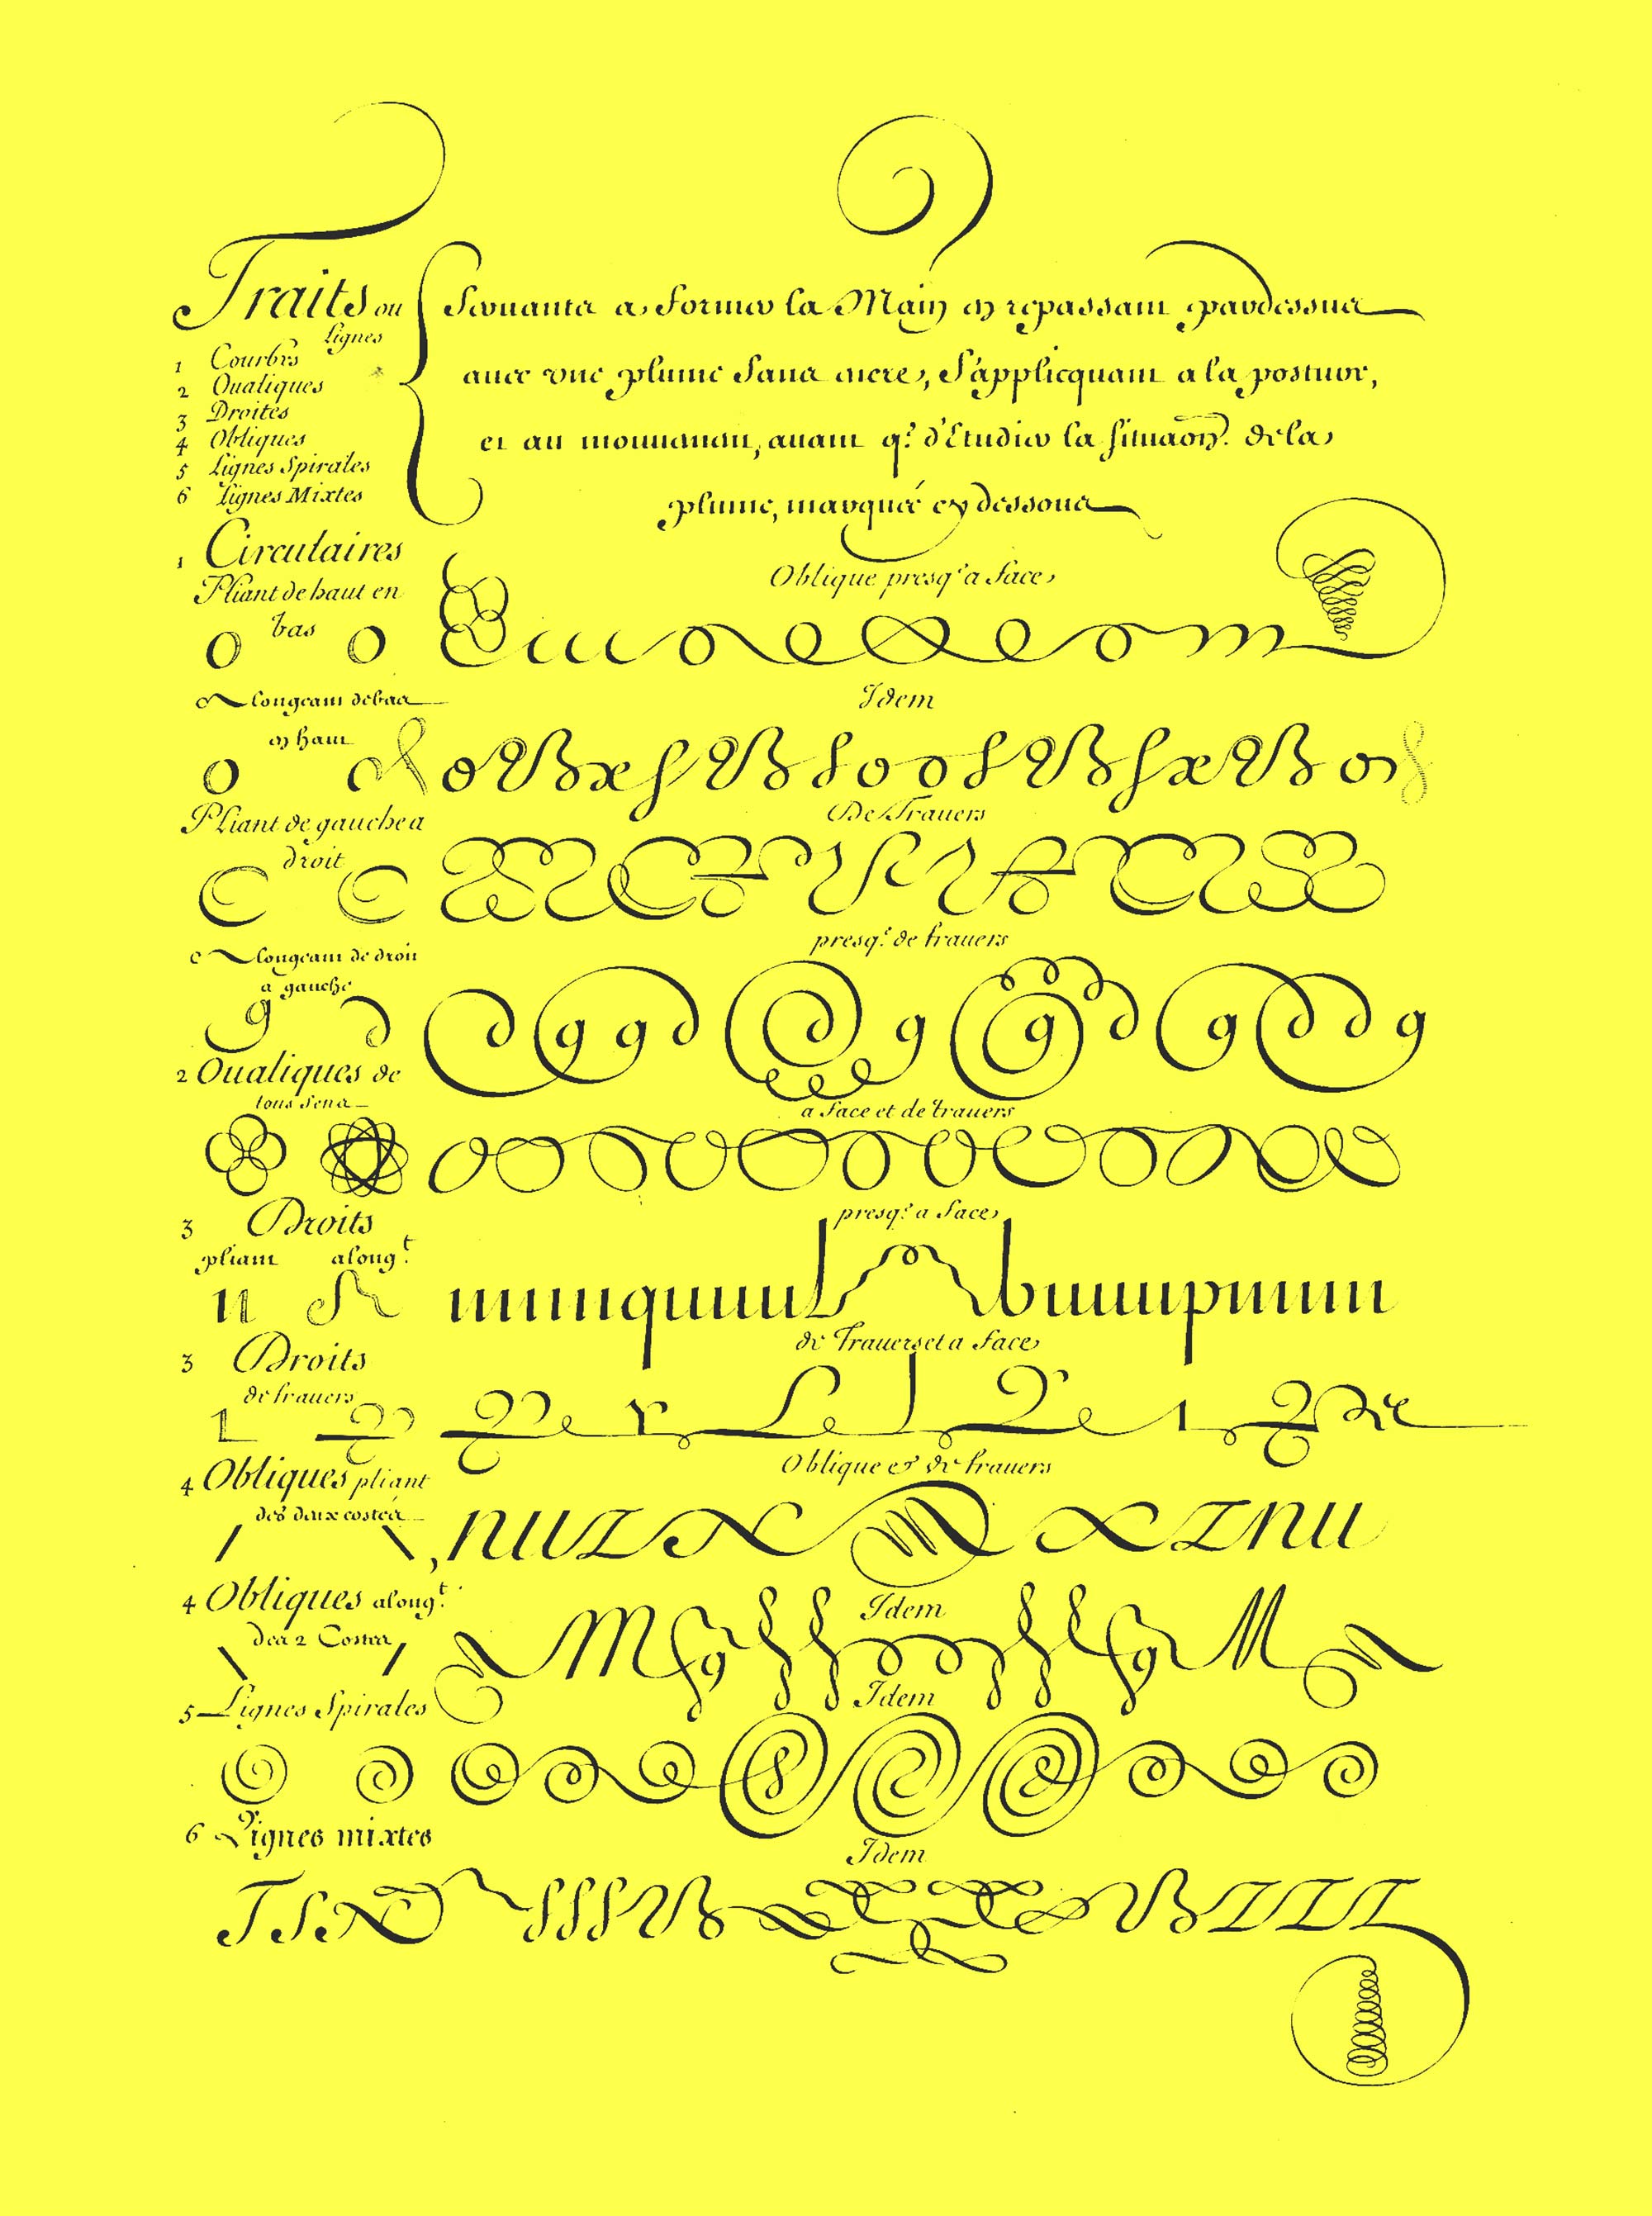 Traits ou
Lignes
1 Courbes
2 Oualiques
3 Droites
4 Obliques
5 Lignes Spirales
6 Lignes Mixtes
Seruants a former la Main en repassant pardessus
auec vne plume sans ancre, S'applicquant a la posture,
et au mouuement, auant q.^e d'Etudier la situaōn. de la
plume, marquée cy dessous
1 Circulaires
Pliant de haut en
bas
Oblique presq.^e a face
alongeant de bas
en haut
Idem
Pliant de gauche a
droit
De Trauers
alongeant de droit
a gauche
presq.^e de trauers
2 Oualiques de
tous sens
a face et de trauers
3 Droits
pliant along.^t
presq.^e a face
3 Droits
de trauers
de Trauers et a face
4 Obliques pliant
des deux costés
Oblique et de trauers
4 Obliques along.^t
des 2 Costés
Idem
5 Lignes Spirales
Idem
6 Lignes mixtes
Idem